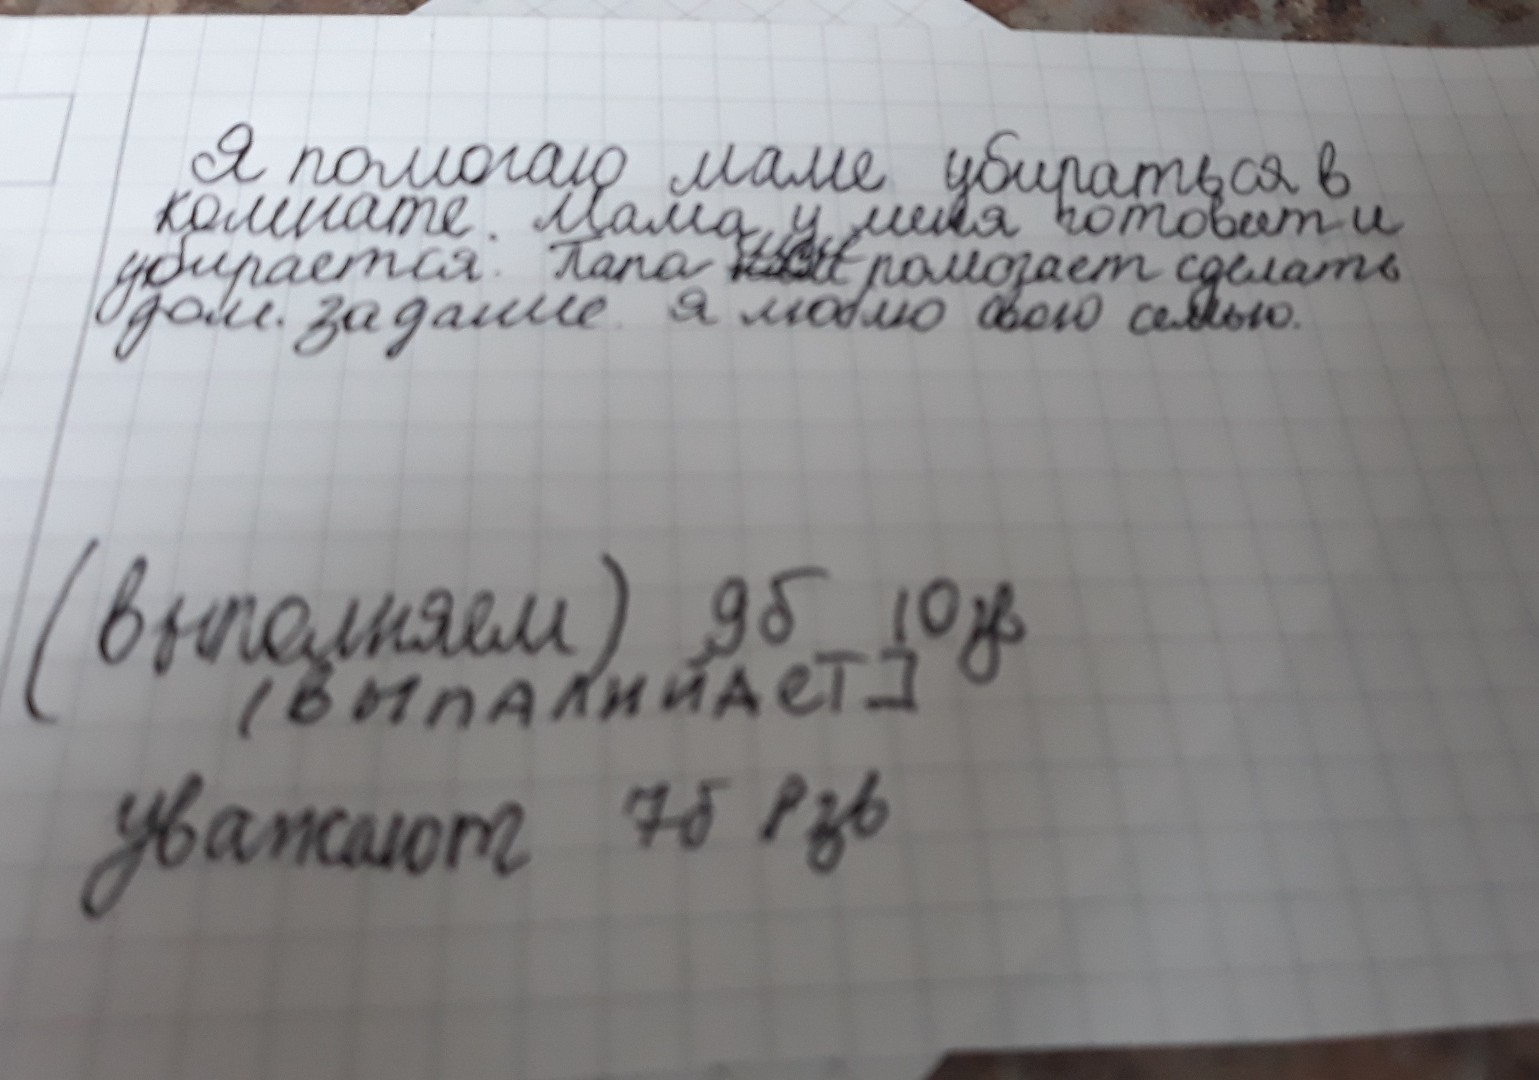 Я помогаю маме убираться в
комнате. Мама у меня готовит и
убирается. Папа помогает сделать
дом. задание. Я люблю свою семью.
(выполняем) 9б 10зв
[ВЫПАЛНЙАЕТ]
уважают 7б 8зв